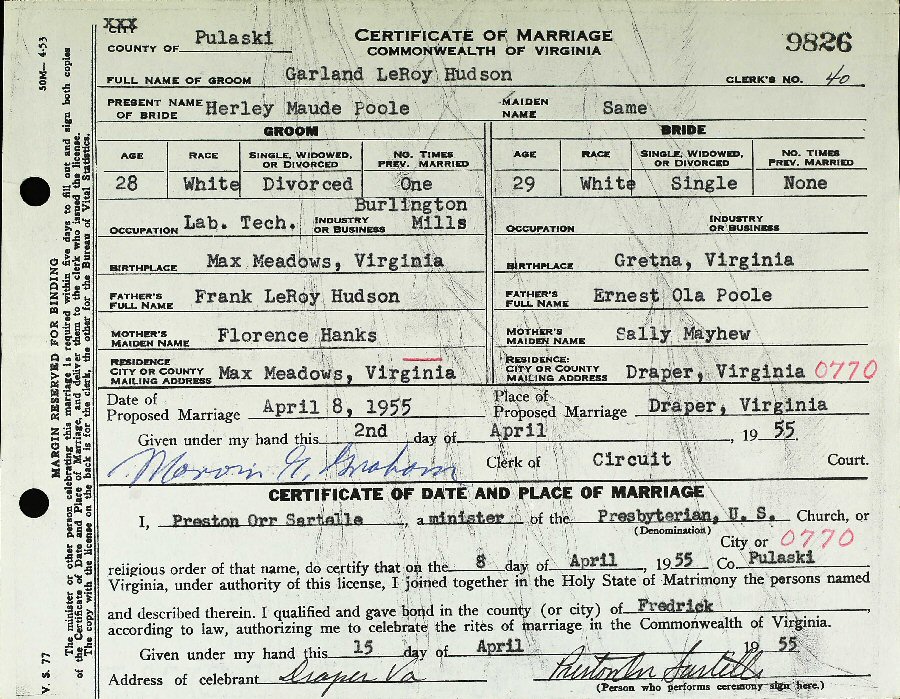 XXX
CITY
COUNTY OF Pulaski
CERTIFICATE OF MARRIAGE
COMMONWEALTH OF VIRGINIA
9826
FULL NAME OF GROOM Garland LeRoy Hudson CLERK'S NO. 40
PRESENT NAME OF BRIDE Herley Maude Poole MAIDEN NAME Same
GROOM BRIDE
AGE RACE SINGLE, WIDOWED, OR DIVORCED NO. TIMES PREV. MARRIED AGE RACE SINGLE, WIDOWED, OR DIVORCED NO. TIMES PREV. MARRIED
28 White Divorced One 29 White Single None
OCCUPATION Lab. Tech. INDUSTRY OR BUSINESS Burlington Mills OCCUPATION INDUSTRY OR BUSINESS
BIRTHPLACE Max Meadows, Virginia BIRTHPLACE Gretna, Virginia
FATHER'S FULL NAME Frank LeRoy Hudson FATHER'S FULL NAME Ernest Ola Poole
MOTHER'S MAIDEN NAME Florence Hanks MOTHER'S MAIDEN NAME Sally Mayhew
RESIDENCE CITY OR COUNTY MAILING ADDRESS Max Meadows, Virginia RESIDENCE: CITY OR COUNTY MAILING ADDRESS Draper, Virginia 0770
Date of Proposed Marriage April 8, 1955 Place of Proposed Marriage Draper, Virginia
Given under my hand this 2nd day of April, 19 55
Marvin G. Graham Clerk of Circuit Court.
CERTIFICATE OF DATE AND PLACE OF MARRIAGE
I, Preston Orr Sartelle, a minister of the Presbyterian, U. S. Church, or
(Denomination)
City or 0770
religious order of that name, do certify that on the 8 day of April, 1955 Co. Pulaski
Virginia, under authority of this license, I joined together in the Holy State of Matrimony the persons named
and described therein. I qualified and gave bond in the county (or city) of Fredrick,
according to law, authorizing me to celebrate the rites of marriage in the Commonwealth of Virginia.
Given under my hand this 15 day of April 19 55
Address of celebrant Draper Va Preston Orr Sartelle
(Person who performs ceremony sign here.)
50M—4-53
MARGIN RESERVED FOR BINDING
The minister or other person celebrating this marriage is required within five days to fill out and sign both copies
of the Certificate of Date and Place of Marriage, and deliver them to the clerk who issued the license.
The copy with the license on the back is for the clerk, the other for the Bureau of Vital Statistics.
V. S. 77